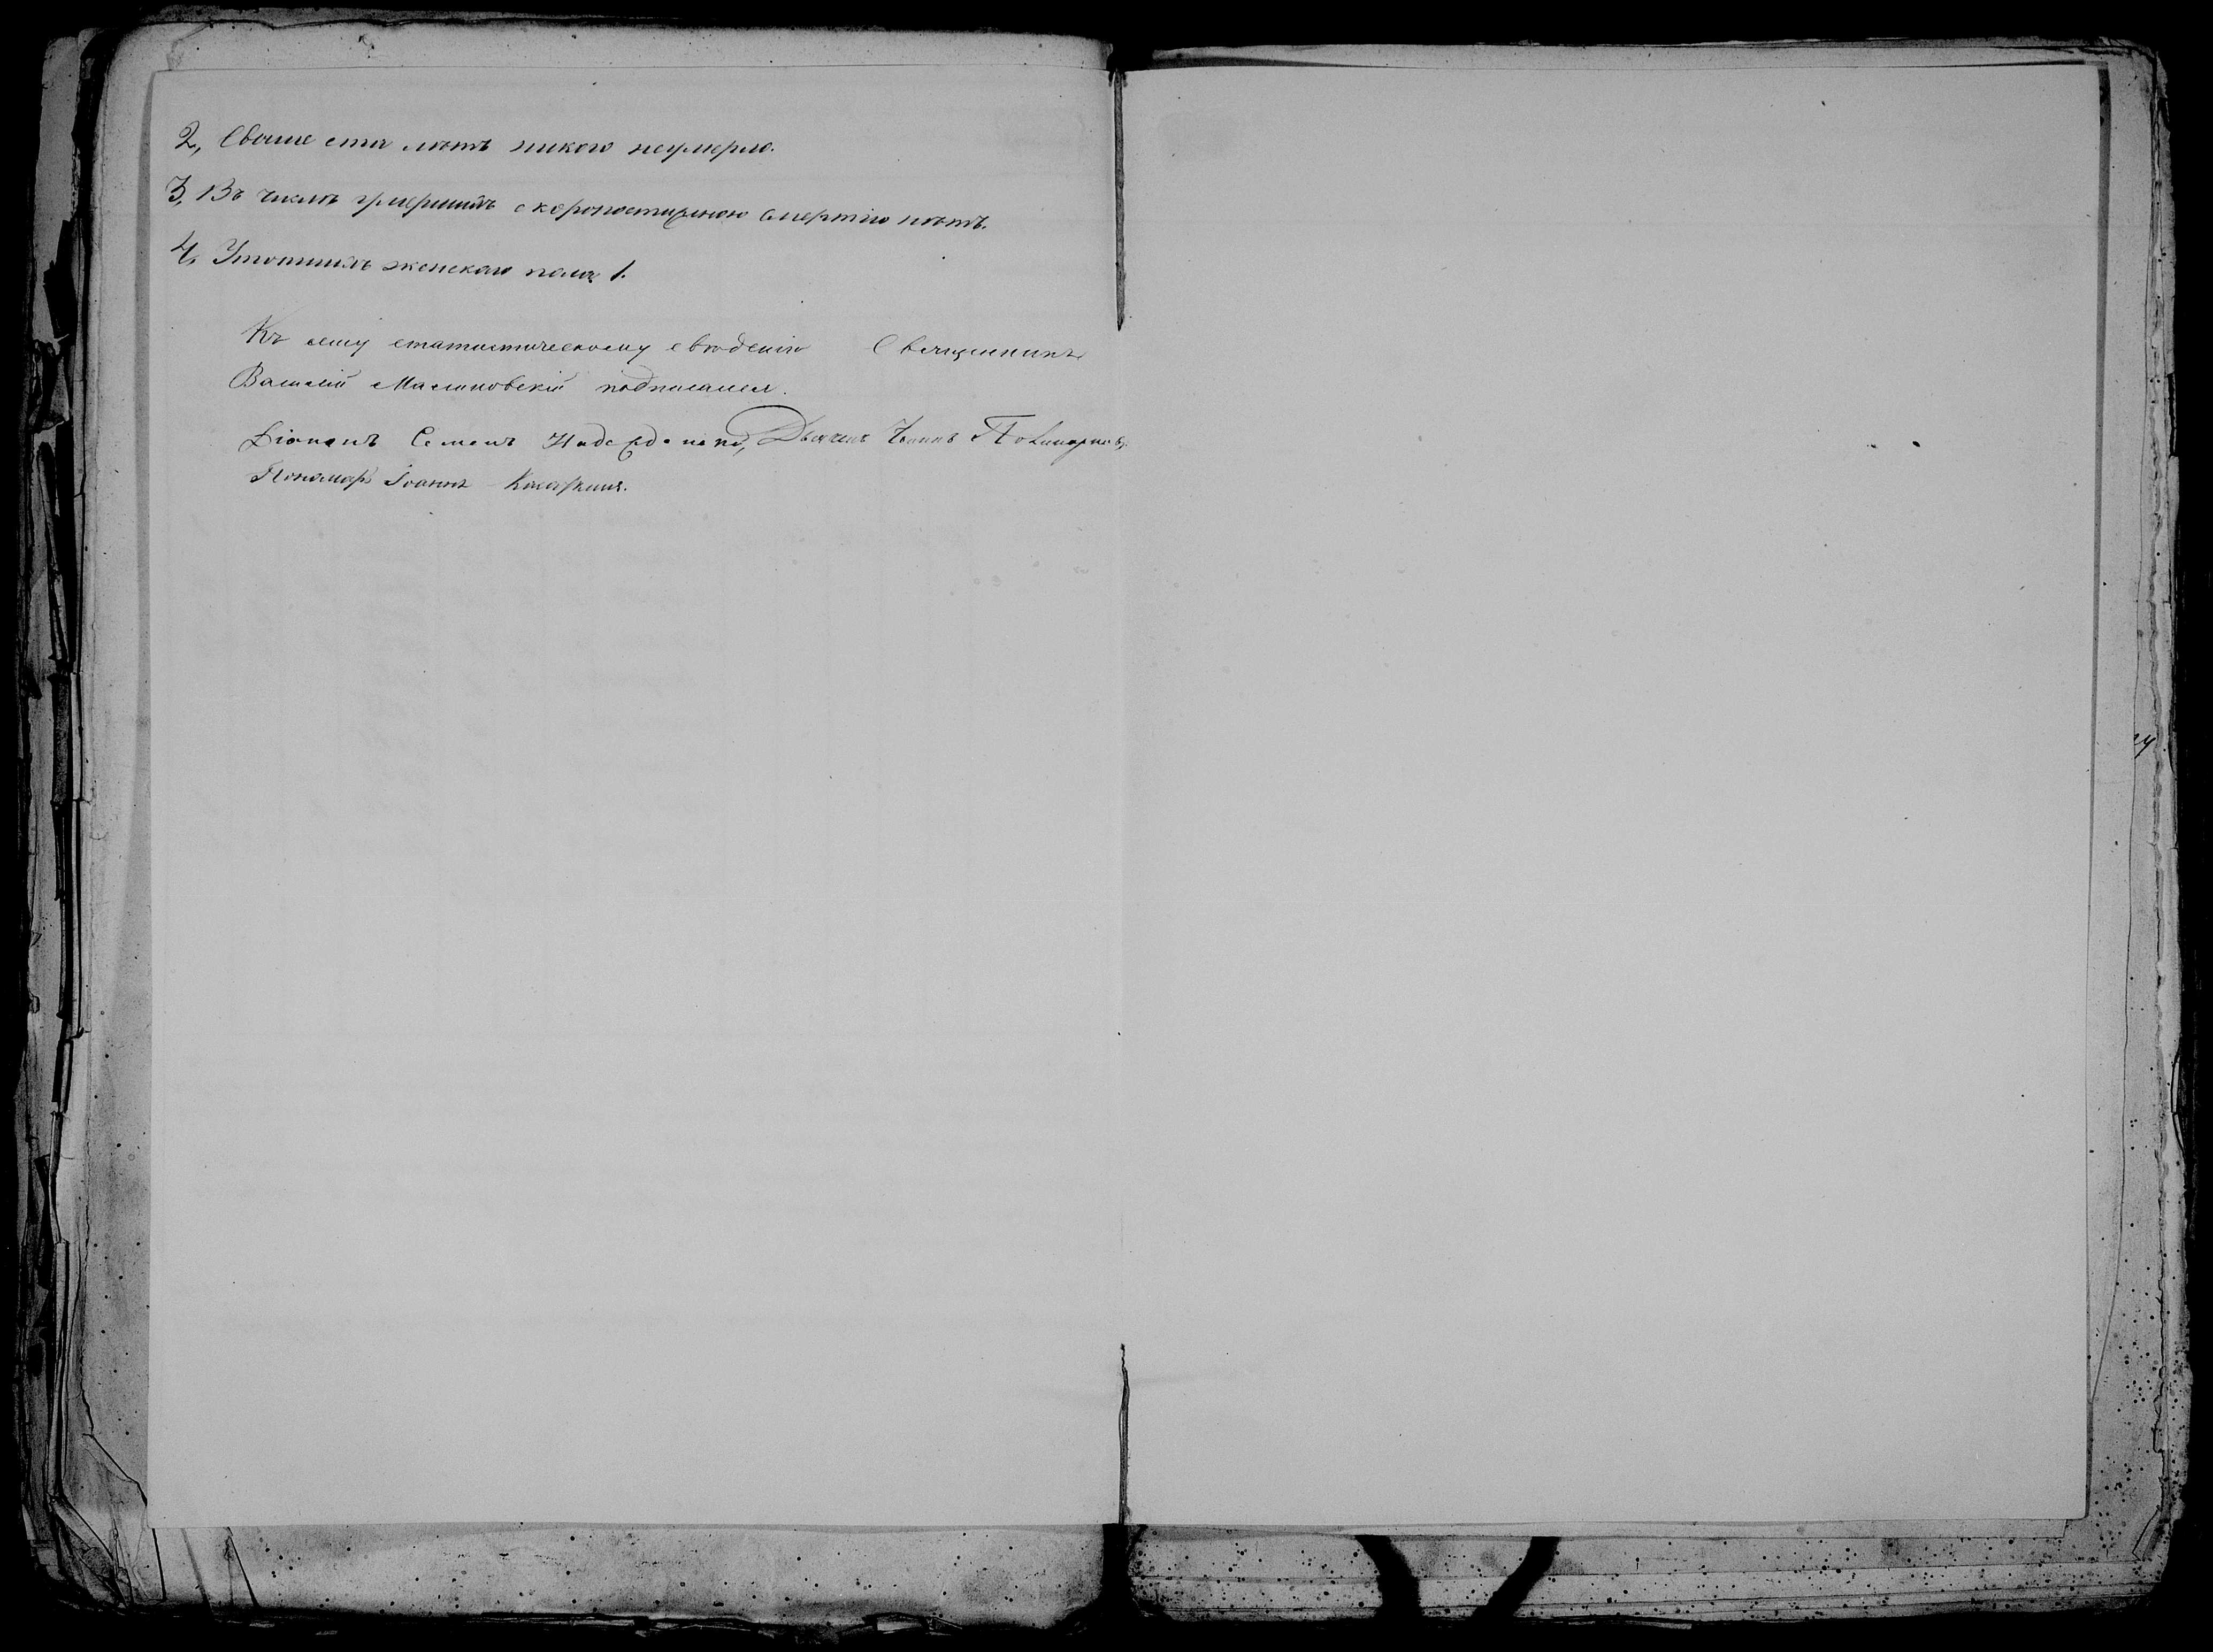 2, Свыше ста лѣтъ никого неумерло.
3, Въ числѣ умершихъ скоропостижною смертію нѣтъ.
4, Утопшихъ женскаго пола 1.
Къ сему статистическому свѣденію Священникъ
Василій Маслиновскій подписался.
Діаконъ Семенъ Дьячекъ Іоаннъ
Пономарь Іоаннъ